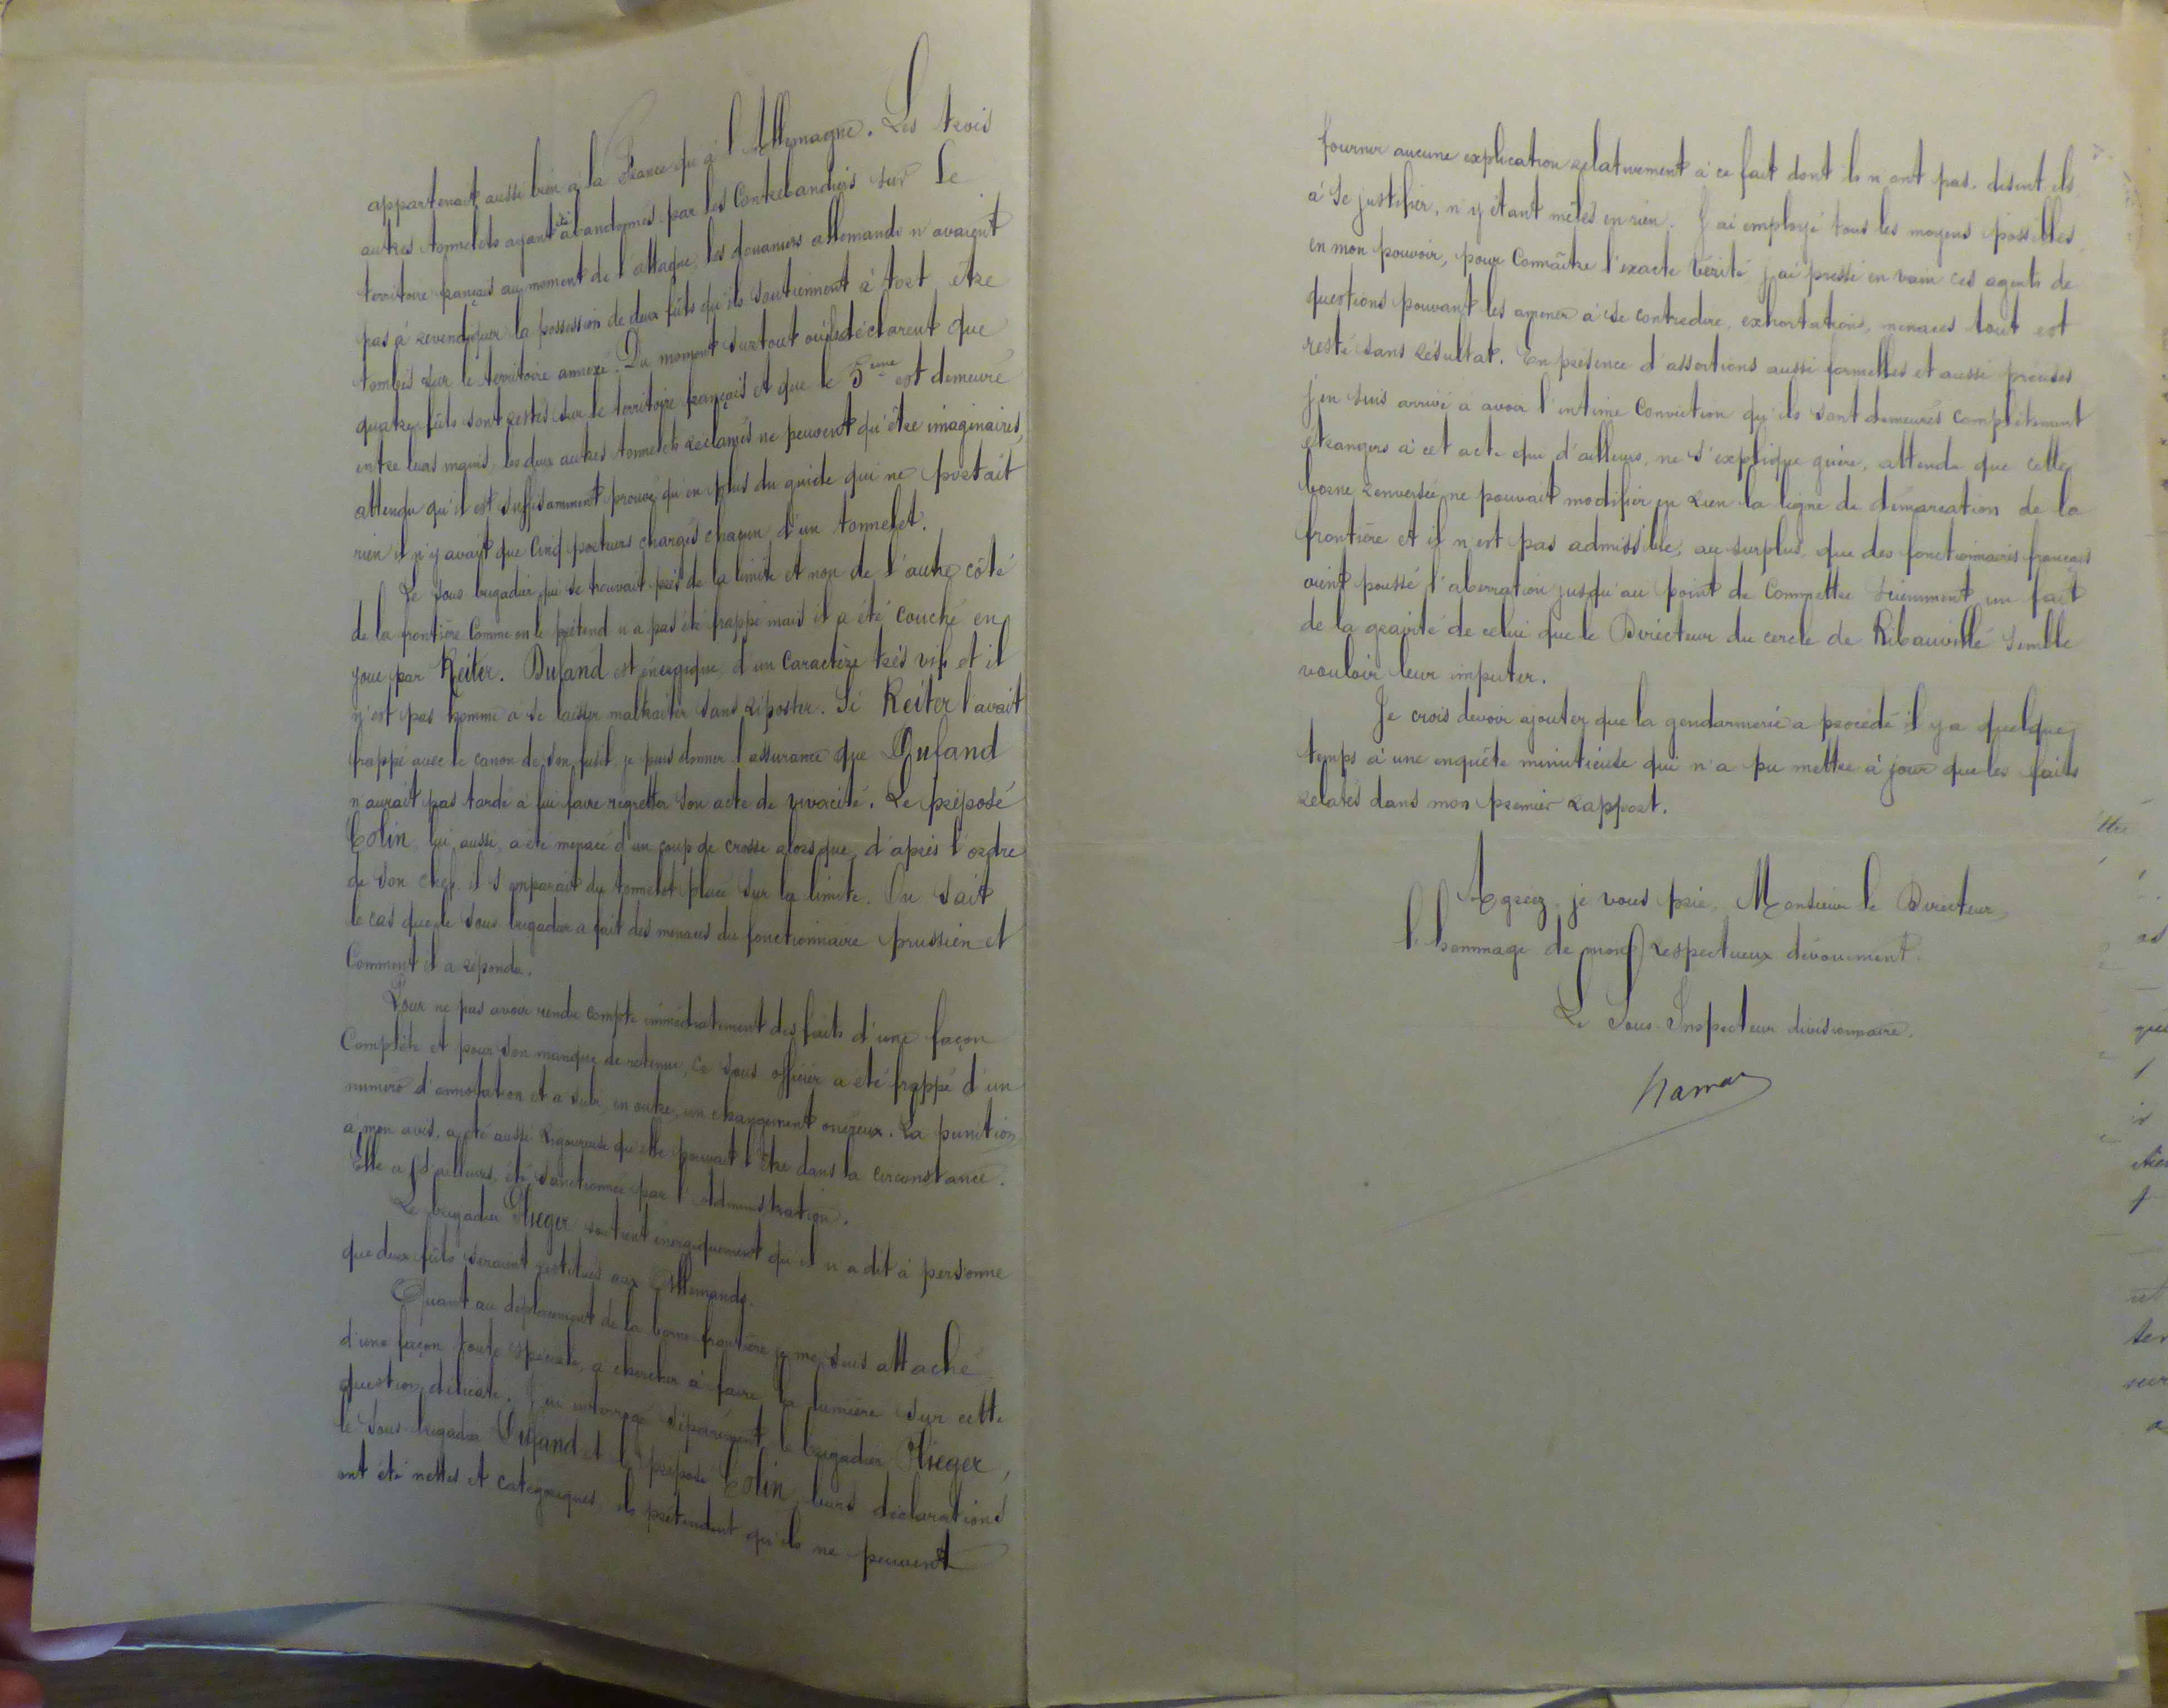 appartenait aussi bien à la France qu'à l'Allemagne. Les trois
autres tonnelets ayant été abandonnés par les Contrebandiers sur le
territoire français au moment de l'attaque, les douaniers allemands n'avaient
pas à revendiquer la possession de deux fûts qu'ils soutiennent à tort être
tombés sur le territoire annexé. Du moment surtout où ils déclarent que
quatre fûts sont restés sur le territoire français et que le 5ème est demeuré
entre leurs mains, les deux autres tonnelets réclamés ne peuvent qu'être imaginaires,
attendu qu'il est suffisamment prouvé qu'en plus du guide qui ne portait
rien il n'y avait que Cinq porteurs chargés chacun d'un tonnelet.
Le Sous brigadier qui se trouvait près de la limite et non de l'autre côté
de la frontière Comme on le prétend n'a pas été frappé mais il a été couché en
joue par Reiter. Dufand est énergique, d'un Caractère très vif et il
n'est pas homme à se laisser maltraiter sans riposter. Si Reiter l'avait
frappé avec le canon de son fusil, je puis donner l'assurance que Dufand
n'aurait pas tardé à lui faire regretter son acte de vivacité. Le préposé
Colin, lui aussi, a été menacé d'un coup de crosse alors que, d'après l'ordre
de son chef, il s'emparait du tonnelet placé sur la limite. On sait
le cas que le Sous brigadier a fait des menaces du fonctionnaire prussien et
Comment il a répondu.
Pour ne pas avoir rendu compte immédiatement des faits d'une façon
Complète et pour son manque de retenue, ce sous officier a été frappé d'un
numéro d'annotation et a subi, en outre, un changement onéreux. La punition,
à mon avis, a été aussi rigoureuse qu'elle pouvait l'être dans la circonstance.
Elle a, d'ailleurs, été sanctionnée par l'Administration.
Le brigadier Flieger soutient énergiquement qu'il n'a dit à personne
que deux fûts seraient restitués aux Allemands.
Quant au déplacement de la borne-frontière je me suis attaché
d'une façon toute spéciale, à chercher à faire la lumière sur cette
question délicate. J'ai interrogé séparément le brigadier Flieger,
le Sous-brigadier Dufand et le préposé Colin, leurs déclarations
ont été nettes et catégoriques, ils prétendent qu'ils ne peuvent
fournir aucune explication relativement à ce fait dont ils n'ont pas, disent-ils,
à se justifier, n'y étant mêlés en rien. J'ai employé tous les moyens possibles
en mon pouvoir, pour Connaître l'exacte Vérité, j'ai pressé en vain ces agents de
questions pouvant les amener à se contredire, exhortations, menaces tout est
resté sans résultat. En présence d'assertions aussi formelles et aussi précises
j'en suis arrivé à avoir l'intime Conviction qu'ils sont demeurés complètement
étrangers à cet acte qui d'ailleurs, ne s'explique guère, attendu que cette
borne renversée ne pouvait modifier en rien la ligne de démarcation de la
frontière et il n'est pas admissible, au surplus, que des fonctionnaires français
aient poussé l'aberration jusqu'au point de Commettre sciemment un fait
de la gravité de celui que le Directeur du cercle de Ribauvillé semble
vouloir leur imputer.
Je crois devoir ajouter que la gendarmerie a procédé il y a quelque
temps à une enquête minutieuse qui n'a pu mettre à jour que les faits
relatés dans mon premier rapport.
Agréez, je vous prie, Monsieur le Directeur,
l'hommage de mon respectueux dévouement.
Le Sous-Inspecteur divisionnaire.